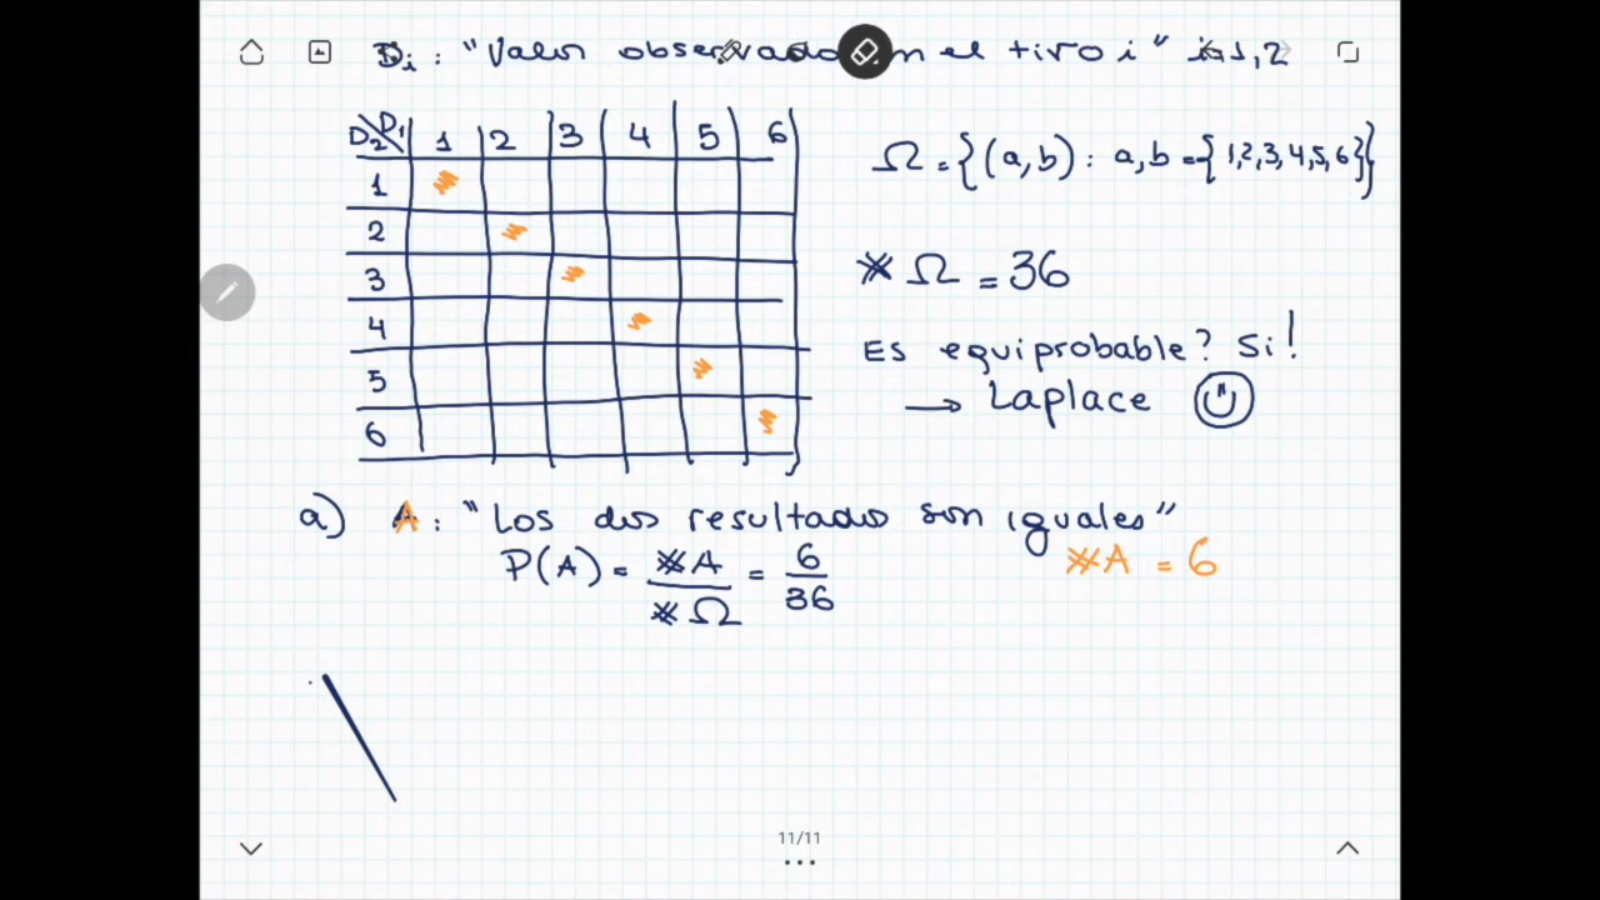 Di : "Valor observado en el tiro i" i=1,2
D2\D1 1 2 3 4 5 6
1
2
3
4
5
6
Ω = {(a,b) : a,b = {1,2,3,4,5,6}}
# Ω = 36
Es equiprobable? Si!
→ Laplace
a) A : "Los dos resultados son iguales"
P(A) = #A / #Ω = 6/36
#A = 6
11/11